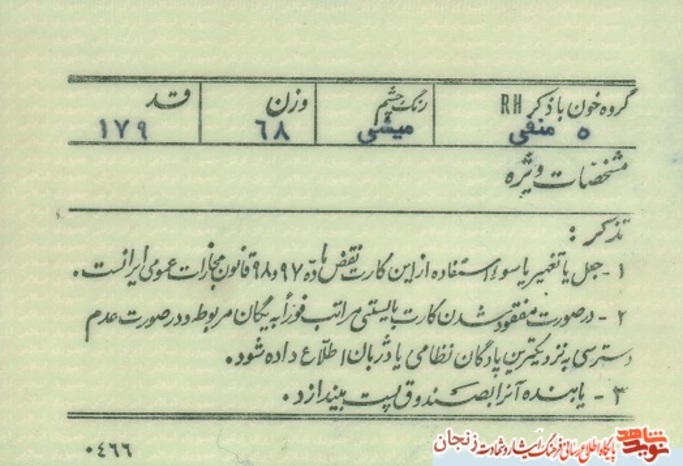 گروه خون با ذکر RH رنگ چشم وزن قد
o منفی میشی ۶۸ ۱۷۹
مشخصات ویژه
تذکر :
۱- جعل یا تغییر یا سوء استفاده از این کارت نقض ماده ۹۷ و ۹۸ قانون مجازات عمومی ایرانست .
۲- در صورت مفقود شدن کارت بایستی مراتب فوراً به یگان مربوط و در صورت عدم
دسترسی به نزدیکترین پادگان نظامی یا دژبان اطلاع داده شود .
۳- یابنده آنرا بصندوق پست بیندازد .
۰۴۶۶
نوید شاهد پایگاه اطلاع رسانی فرهنگ ایثار و شهادت زنجان